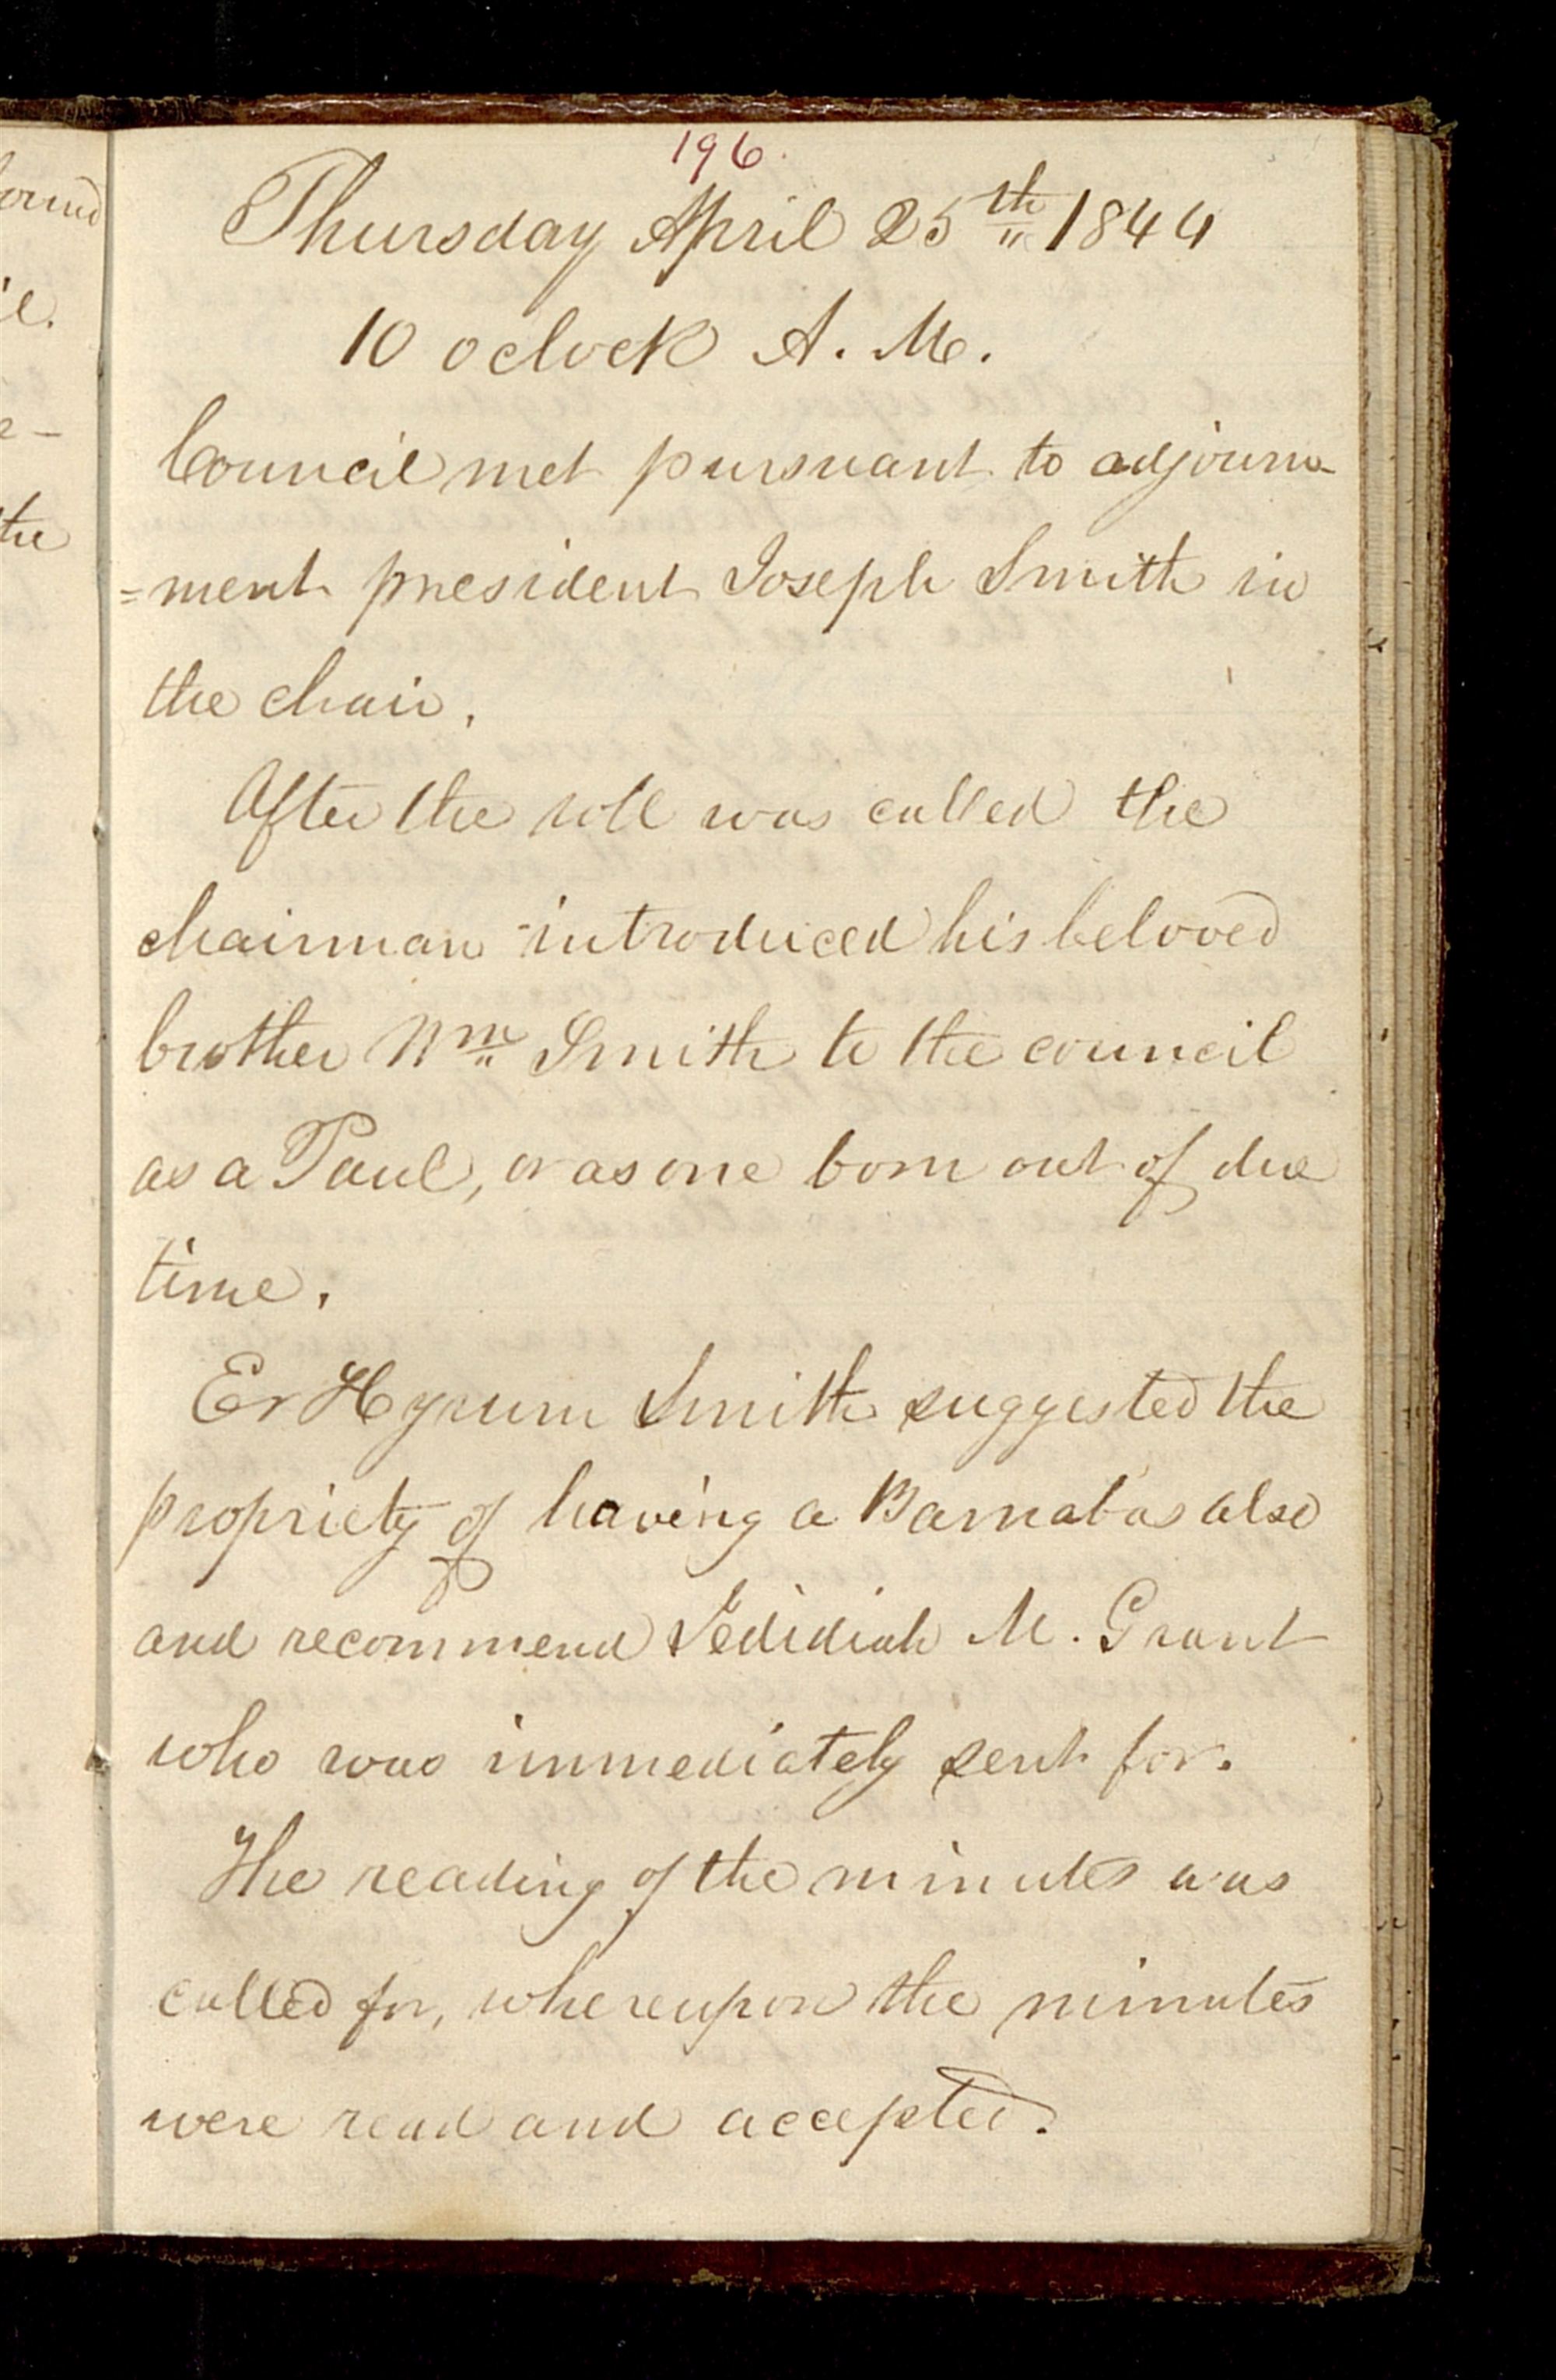 196
Thursday April 25th 1844
10 oclock A. M.
Council met pursuant to adjourn-
=ment president Joseph Smith in
the chair.
After the roll was called the
chairman introduced his beloved
brother Wm Smith to the council
as a Paul, or as one born out of due
time.
Er Hyrum Smith suggested the
propriety of having a Barnabas also
and recommend Jedidiah M. Grant
who was immediately sent for.
The reading of the minutes was
called for, whereupon the minutes
were read and accepted.